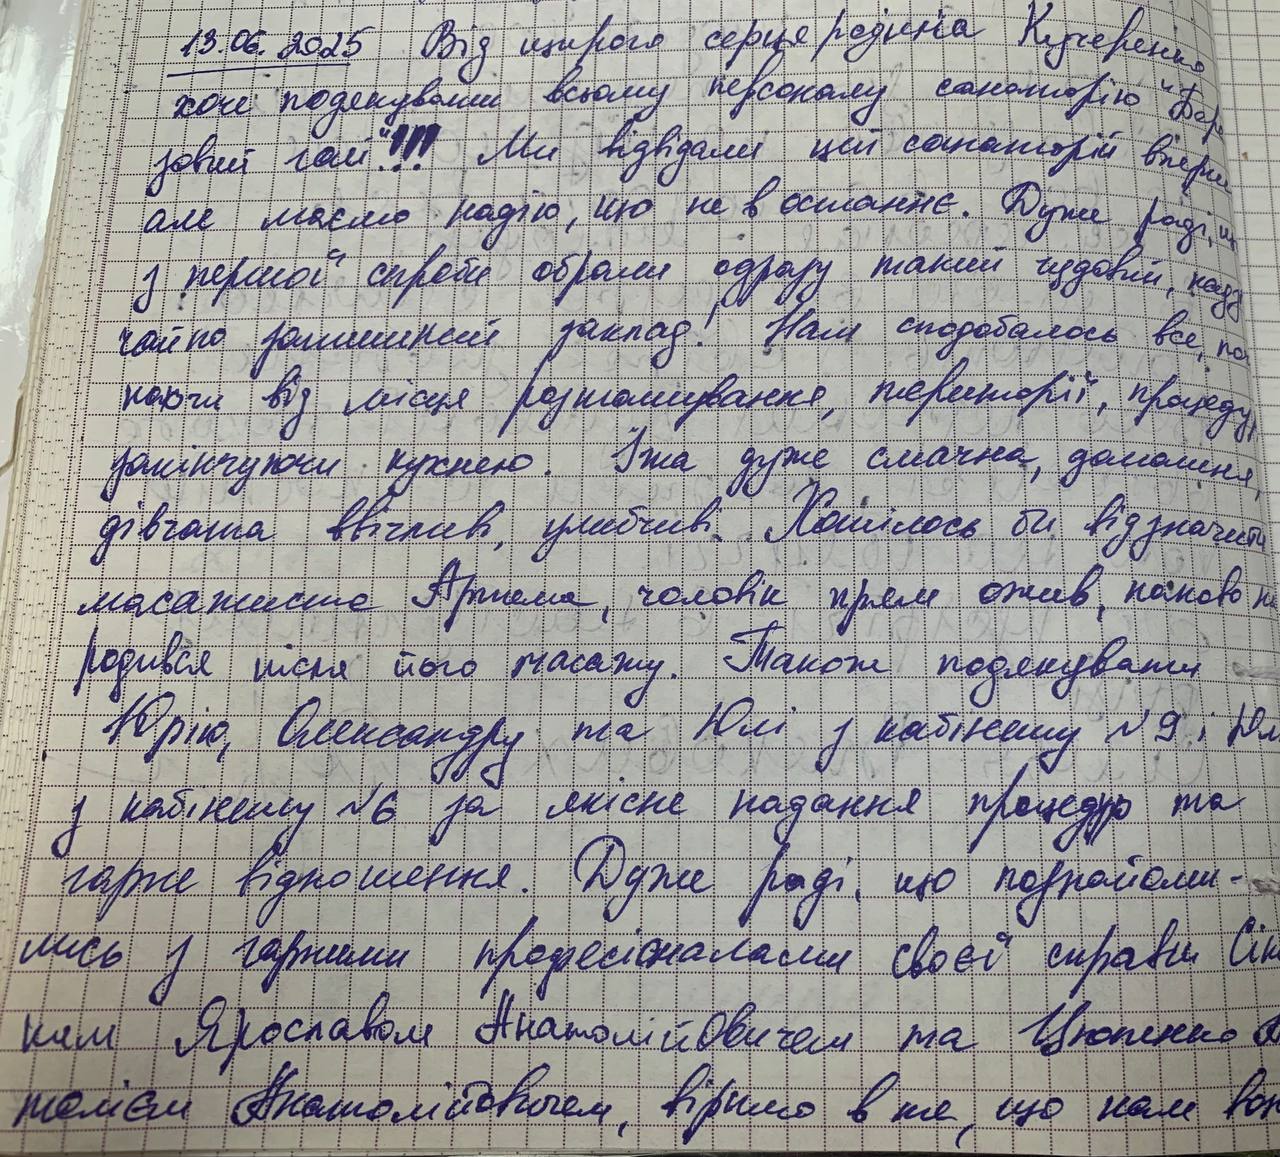 13.06.2025 Від щирого серця родина Кучеренко
хоче подякувати всьому персоналу санаторію "Бере
зовий гай"!!! Ми відвідали цей санаторій вперше
але маємо надію, що не в останнє. Дуже раді, що
з першої спроби обрали одразу такий чудовий, надз
чайно затишний заклад! Нам сподобалось все, поч
наючи від місця розташування, території, процедур,
закінчуючи кухнею. Їжа дуже смачна, домашня,
дівчата ввічливі, улибчиві. Хотілось би відзначити
масажиста Артема, чоловік прям ожив, наново на
родився після його масажу. Також подякувати
Юрію, Олександру та Юлі з кабінету №9 і Юлі
з кабінету №6 за якісне надання процедур та
гарне відношення. Дуже раді, що познайоми-
лись з гарними професіоналами своєї справи
ким Ярославом Анатолійовичем та
толієм Анатолійовичем, віримо в те, що нам вони